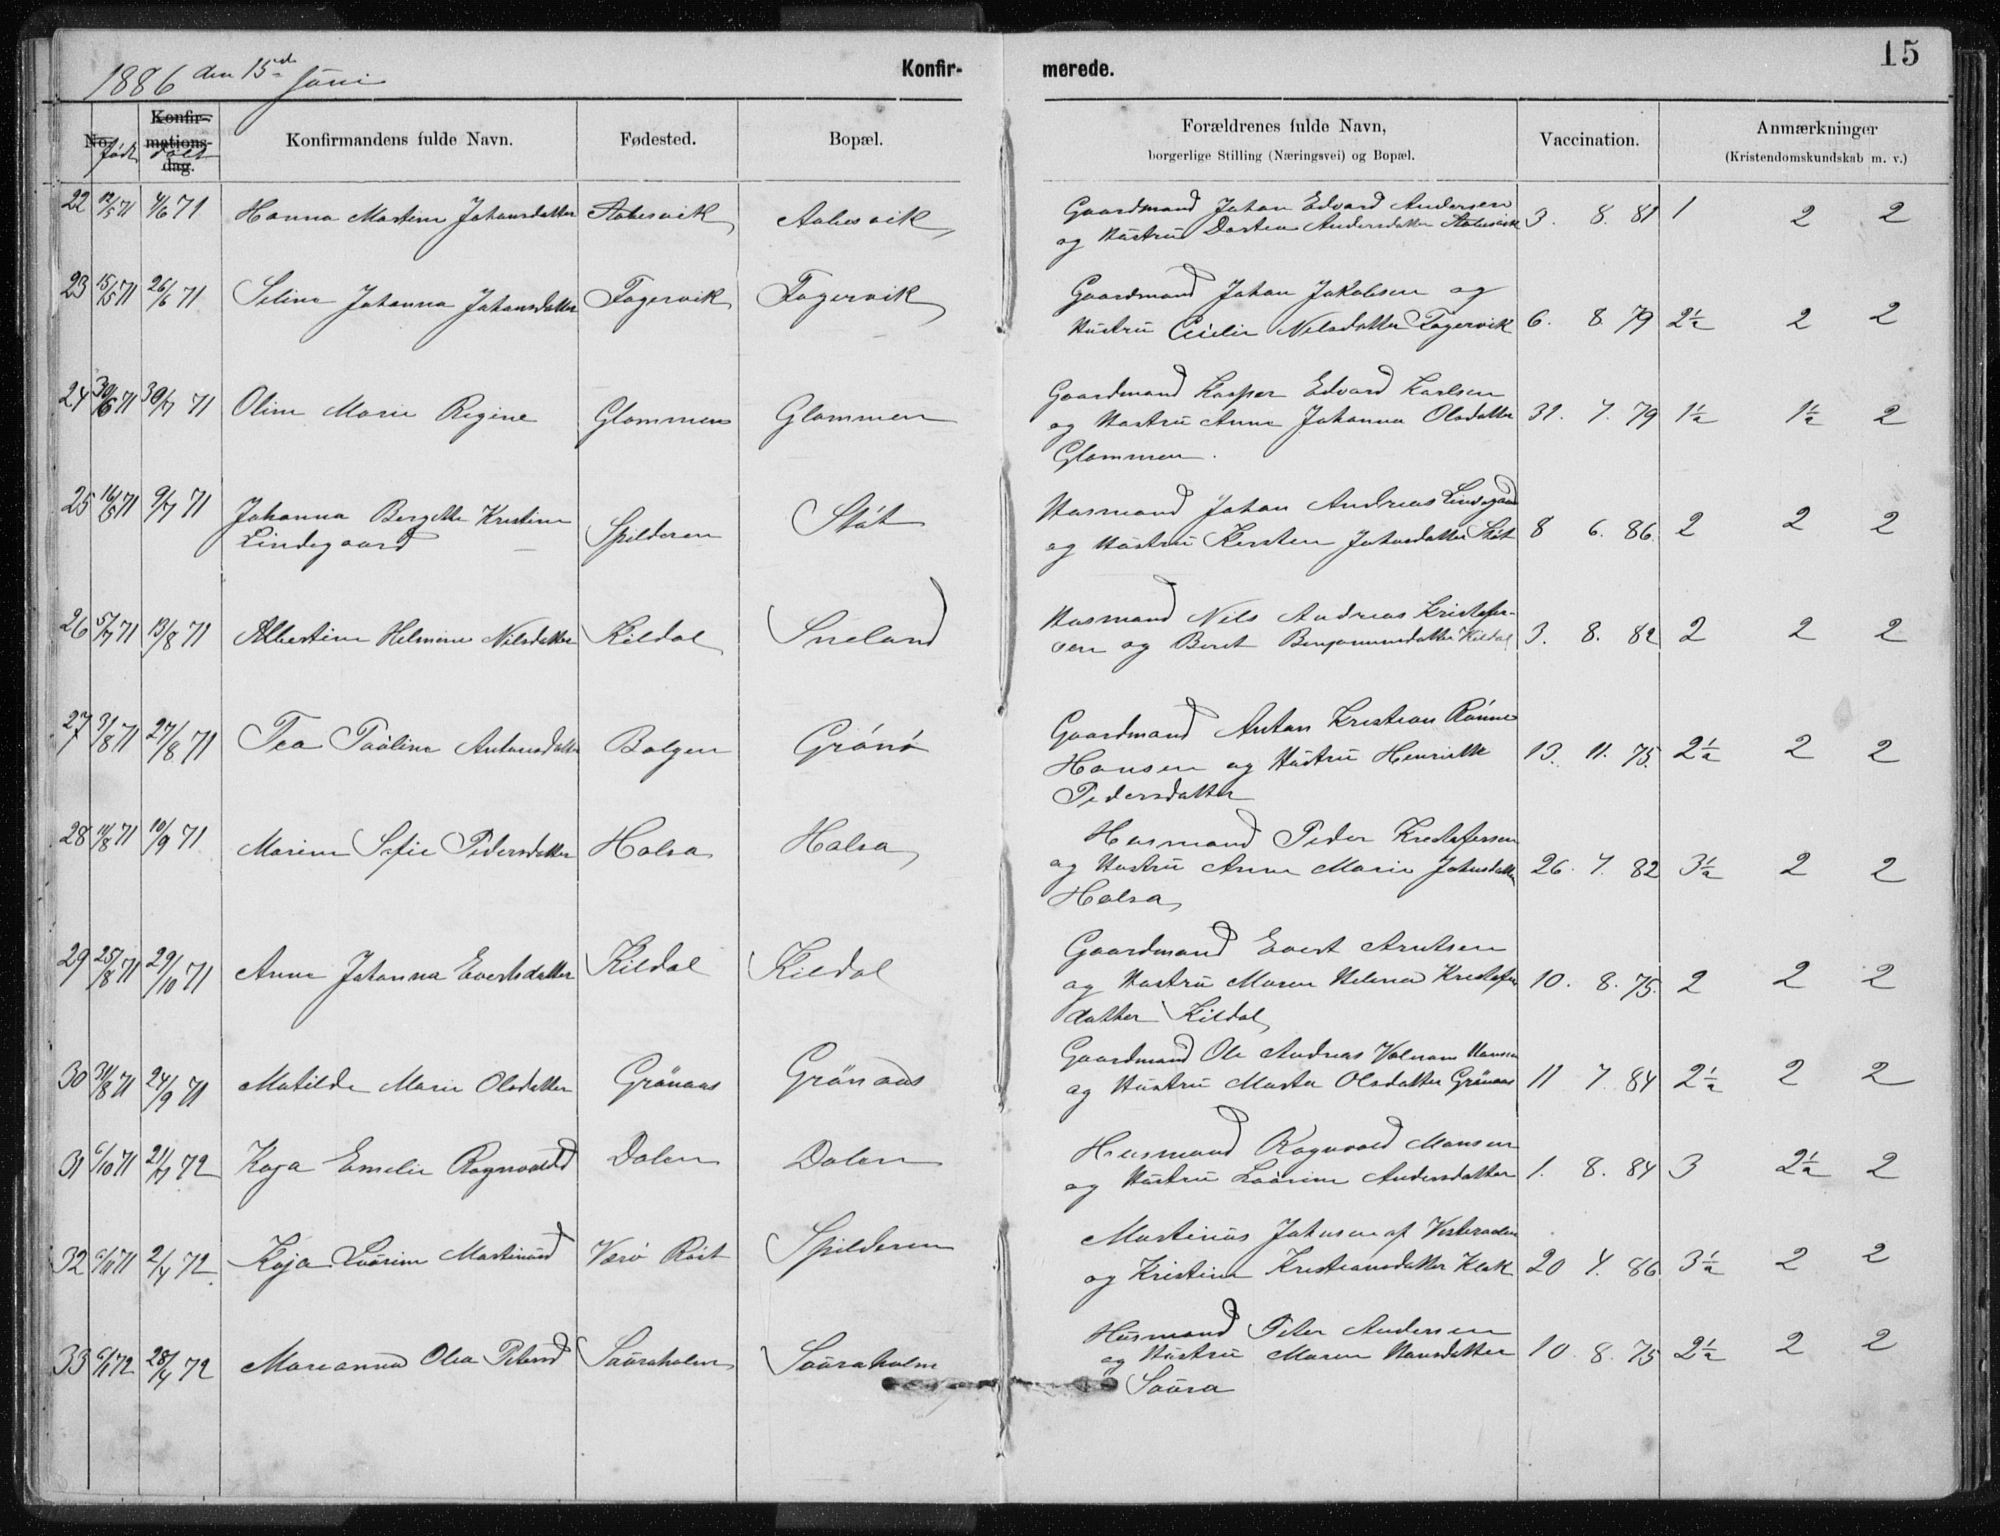 1886 den 15de Juni
Konfir-
merede.
15
No. født
Konfir-mations-dag. døbt
Konfirmandens fulde Navn.
Fødested.
Bopæl.
Forældrenes fulde Navn,
borgerlige Stilling (Næringsvei) og Bopæl.
Vaccination.
Anmærkninger
(Kristendomskundskab m. v.)
22 12/5 71 4/6 71 Hanna Martine Johansdatter Aabesvik Aabesvik
Gaardmand Johan Edvard Andersen
og Hustru Dortea Andersdatter Aabesvik 3. 8. 81 1 2 2
23 15/5 71 26/6 71 Seline Johanna Johansdatter Fagervik Fagervik
Gaardmand Johan Jakobsen og
Hustru Cecilie Nilsdatter Fagervik 6. 8. 79 2½ 2 2
24 30/6 71 30/7 71 Oline Marie Regine Glommen Glommen
Gaardmand Kasper Edvard Karlsen
og Hustru Anne Johanna Olsdatter 31. 7. 79 1½ 1½ 2
Glommen.
25 16/5 71 9/7 71 Johanna Bergette Kristine Lindegaard Spilderen Støt
Husmand Johan Andreas Lindegaard
og Hustru Kirsten Johnsdatter Støt 8 6. 86. 2 2 2
26 5/7 71 13/8 71 Albertine Helmine Nilsdatter Kildal Sneland
Husmand Nils Andreas Kristofer-
sen og Beret Benjaminsdatter Kildal 3. 8. 82 2 2 2
27 3/8 71 27/8 71 Tea Paŭline Antonsdatter Bolgen Grönö
Gaardmand Anton Kristian Rönne
Hansen og Hustru Henrikke 13. 11. 75. 2½ 2 2
Pedersdatter
28 11/8 71 10/9 71 Marine Sofie Pedersdatter Halsa Halsa
Husmand Peder Kristofersen
og Hustru Anne Marie Johnsdatter 26. 7. 82 3½ 2 2
Halsa
29 25/8 71 29/10 71 Anne Johanna Evertsdatter Kildal Kildal
Gaardmand Evert Arntsen
og Hustru Maren Helena Kristofers 10. 8. 75. 2 2 2
datter Kildal
30 31/8 71 24/9 71 Matilde Marie Olsdatter Grönaas Grönaas
Gaardmand Ole Andreas Volnam Hansen
og Hustru Marta Olsdatter Grönaas 11 7. 84 2½ 2 2
31 6/10 71 21/7 72 Kaja Emelie Ragnvaldsd Dalen Dalen
Husmand Ragnvald Monsen
og Hustru Laŭrine Andersdatter 1. 8. 84 3 2½ 2
32 6/11 71 2/4 72 Kaja Laŭrine Martinusd Værö Röst Spilderen
Martinŭs Johnsen af Vesteraalen
og Kristine Kristiansdatter Klok 20 4. 86 3½ 2 2
33 6/1 72 28/4 72 Marianna Olea Petersd Saŭraholm Saŭraholm
Husmand Peter Andersen
og Hustru Maren Hansdatter 10. 8. 75 2½ 2 2
Saŭra